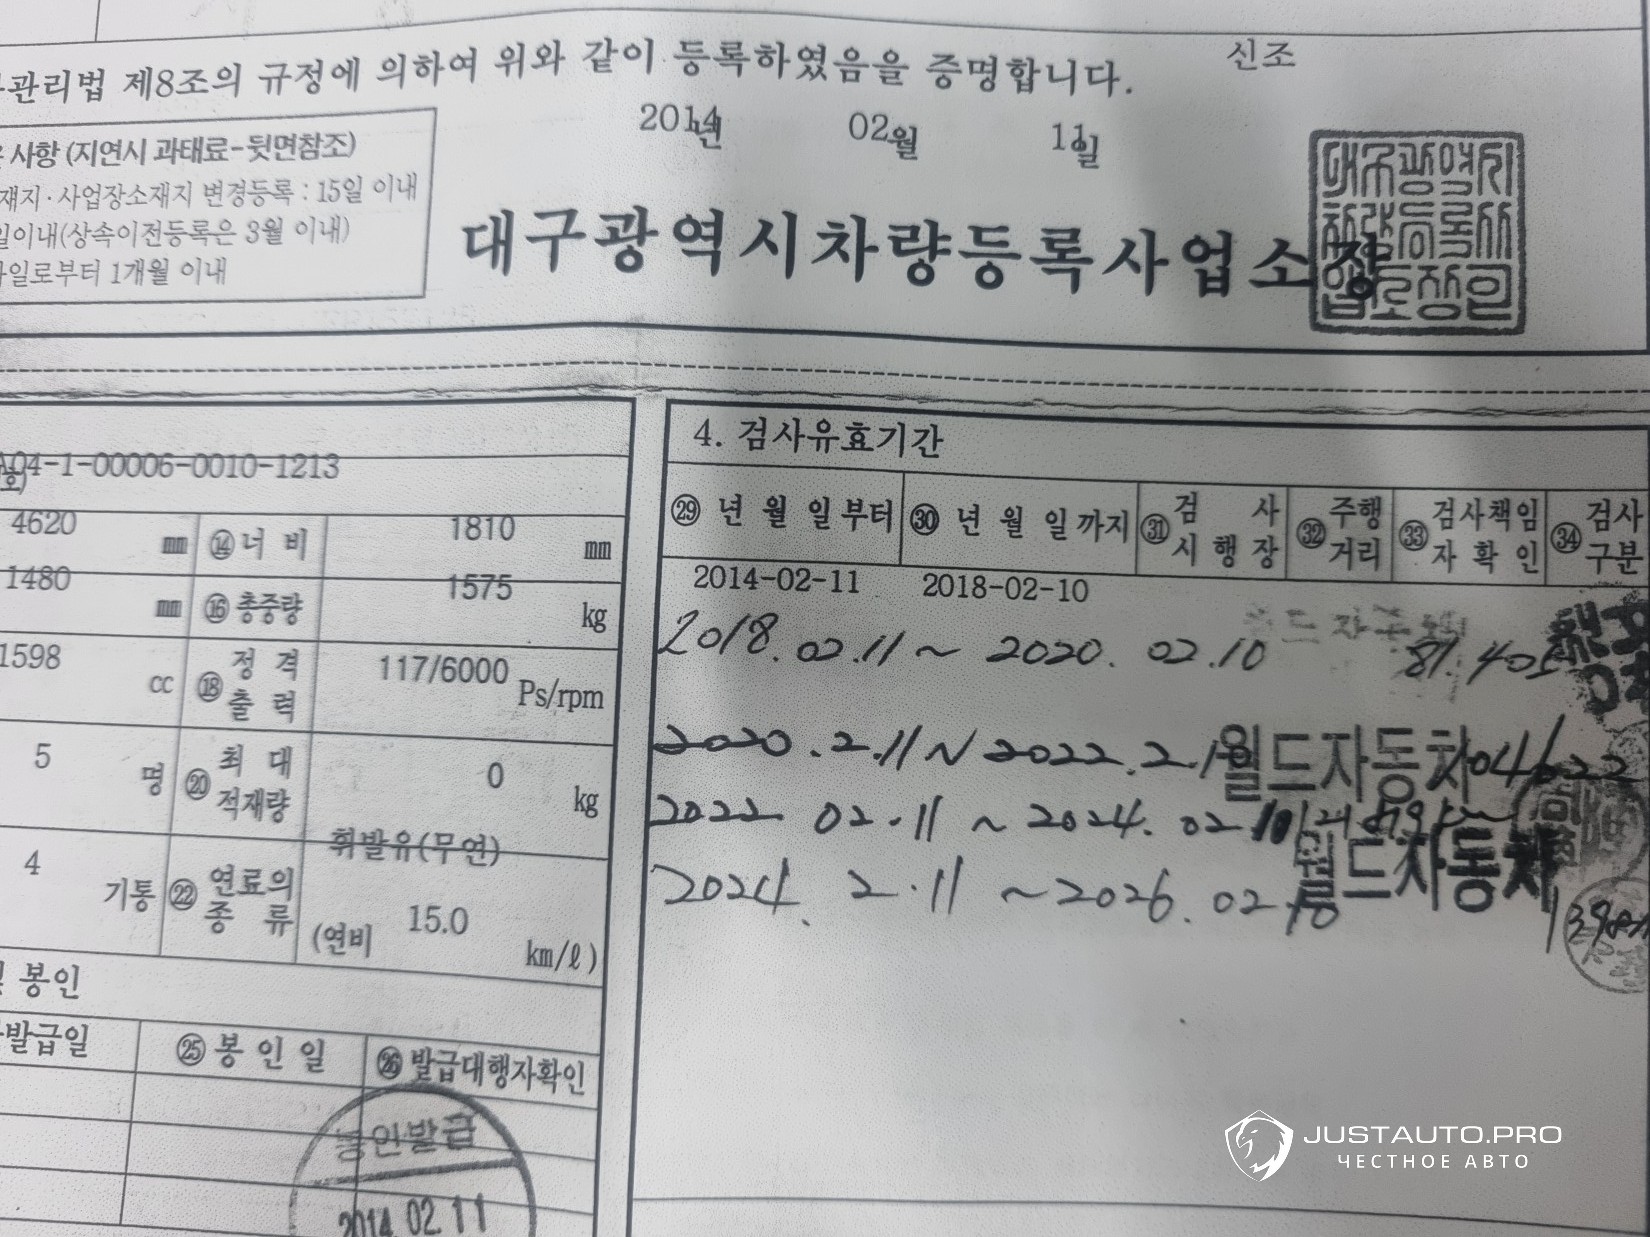 관리법 제8조의 규정에 의하여 위와 같이 등록하였음을 증명합니다.
신조
2014년 02월 11일
사항 (지연시 과태료-뒷면참조)
재지·사업장소재지 변경등록 : 15일 이내
일이내(상속이전등록은 3월 이내)
일로부터 1개월 이내
대구광역시차량등록사업소장
A04-1-00006-0010-1213
호)
4620 mm ⑭ 너 비 1810 mm
1480 mm ⑯ 총중량 1575 kg
1598 cc ⑱ 정 격 출 력 117/6000 Ps/rpm
5 명 ⑳ 최 대 적재량 0 kg
4 기통 ㉒ 연료의 종 류 휘발유(무연)
(연비 15.0 km/ℓ)
봉인
발급일 ㉕ 봉 인 일 ㉖ 발급대행자확인
봉인발급
2014.02.11
4. 검사유효기간
㉙ 년 월 일부터 ㉚ 년 월 일까지 ㉛ 검 사 시 행 장 ㉜ 주행 거리 ㉝ 검사책임 자 확 인 ㉞ 검사 구분
2014-02-11 2018-02-10
2018.02.11 ~ 2020.02.10 월드자동차
2020.2.11 ~ 2022.2.10 월드자동차 104622
2022 02.11 ~ 2024.02 10
월드자동차
2024. 2.11 ~ 2026.02 10
JUSTAUTO.PRO
ЧЕСТНОЕ АВТО